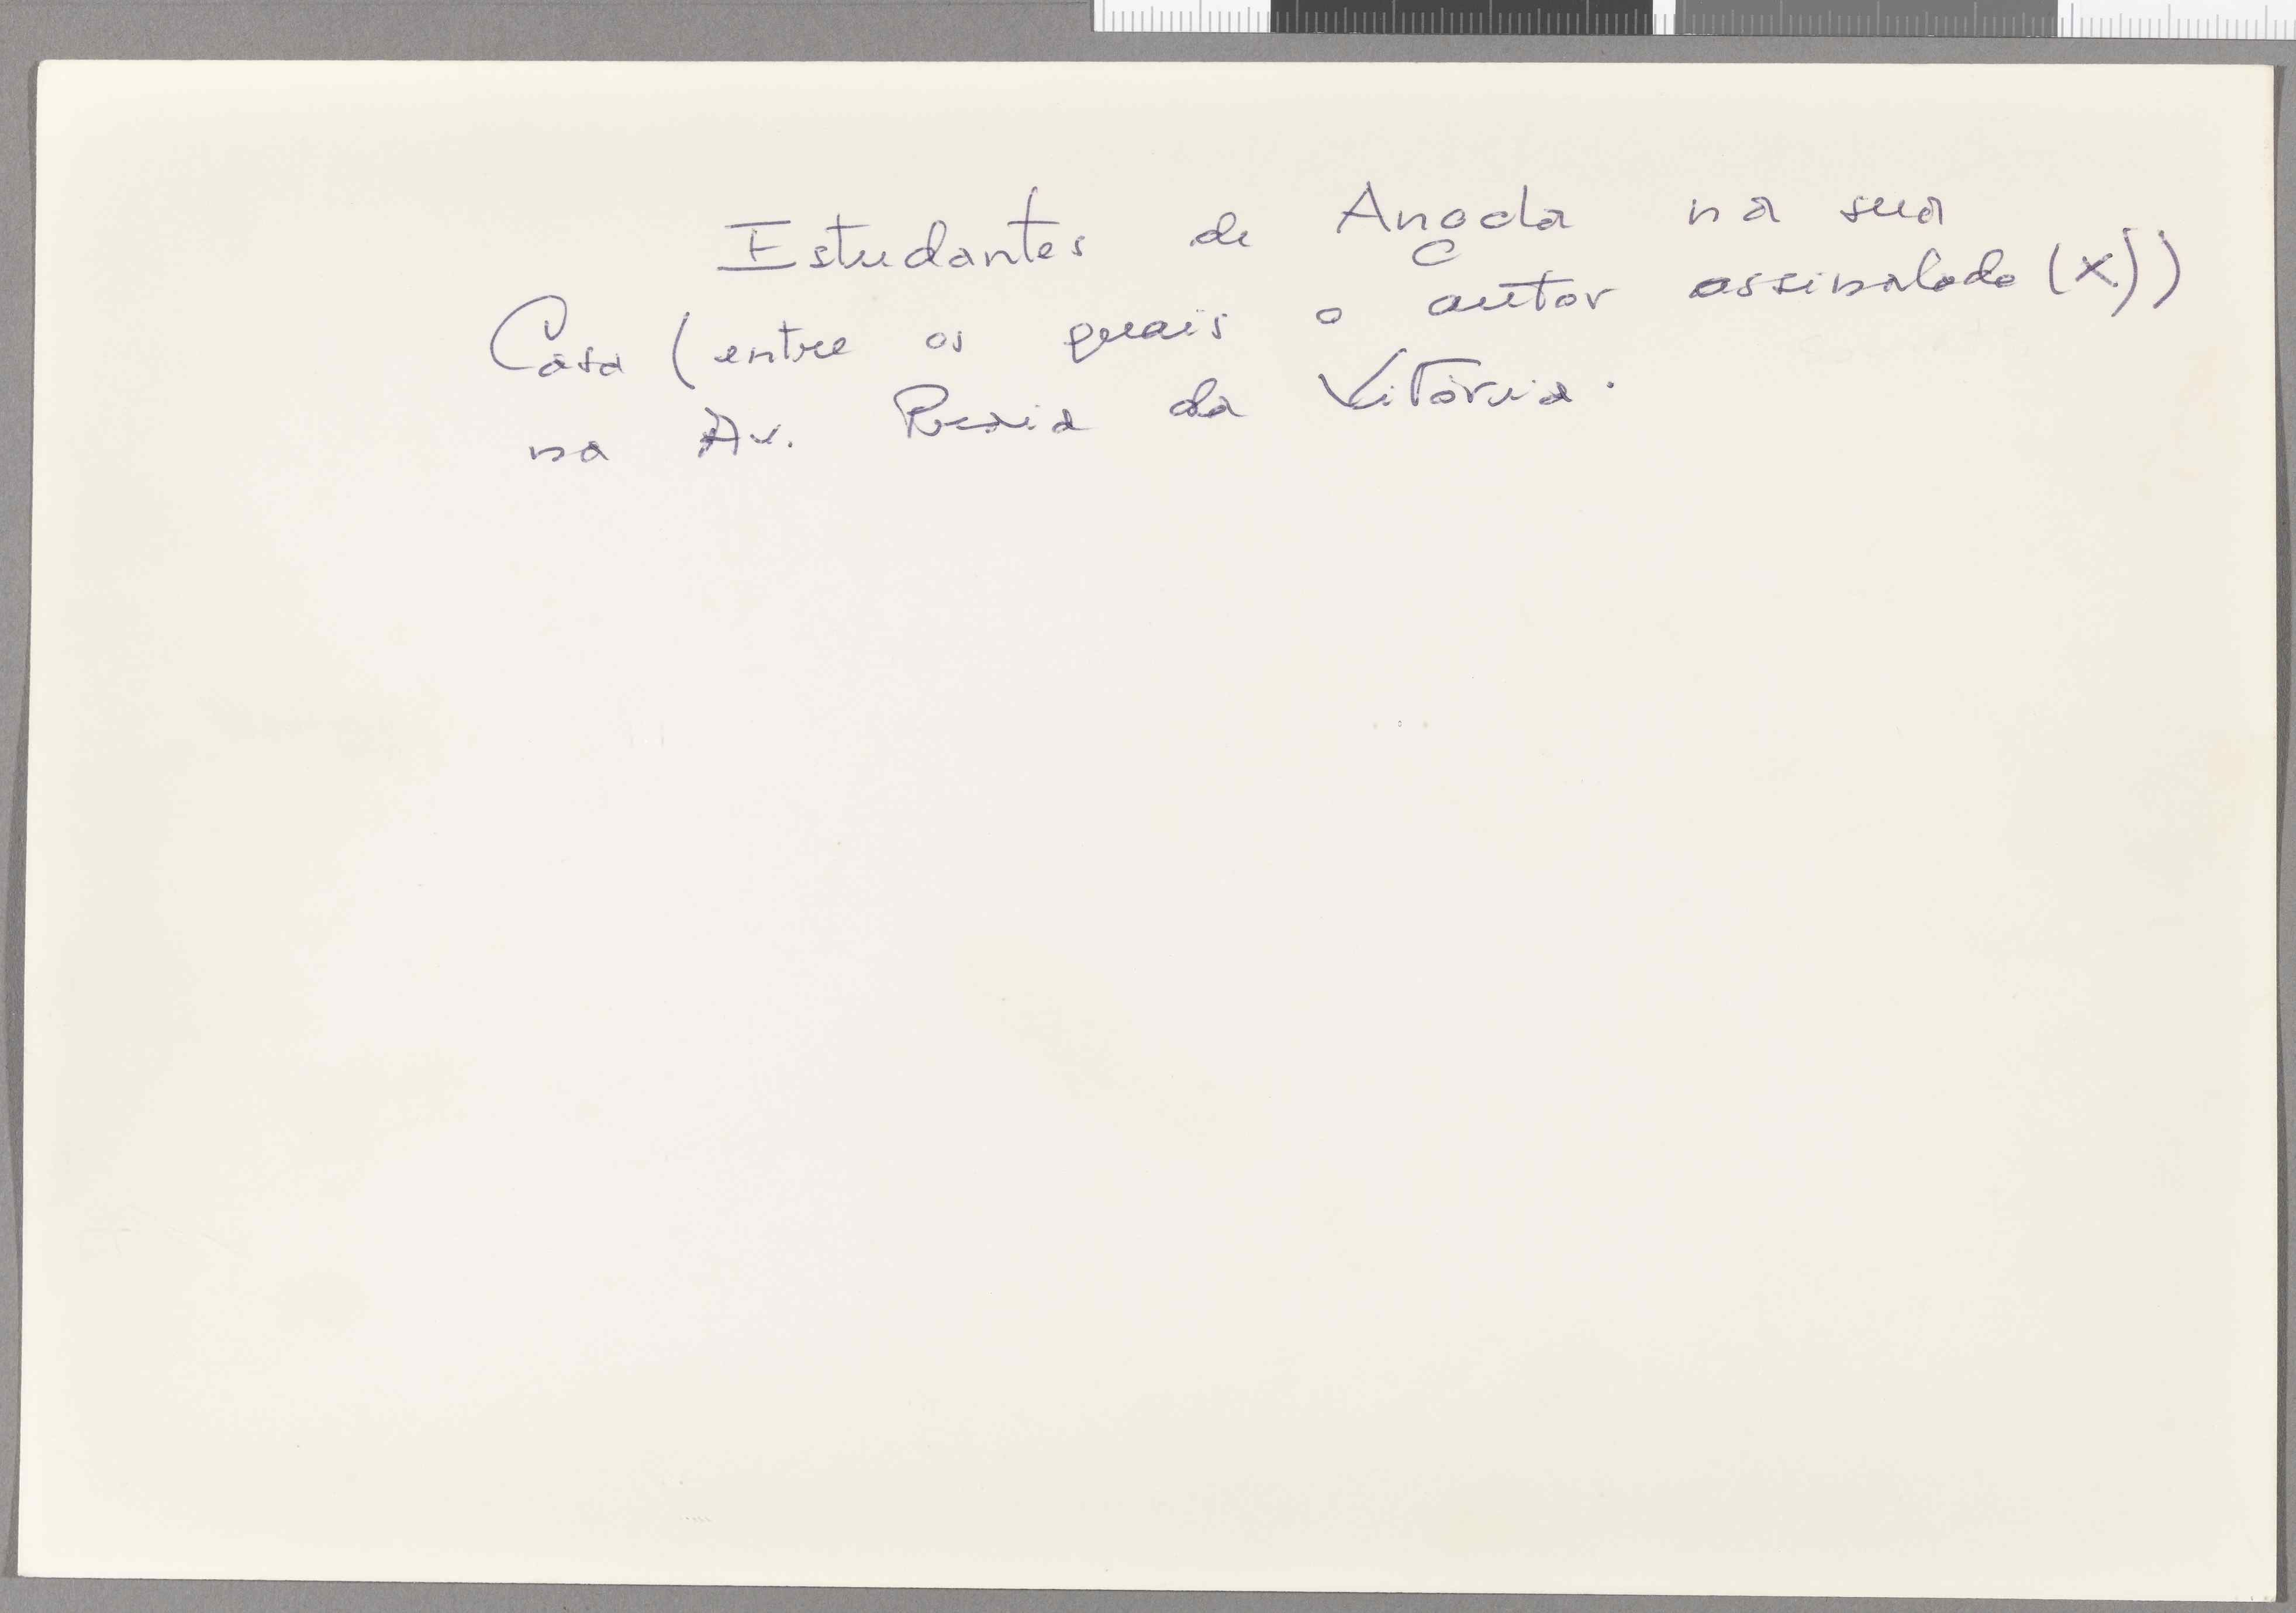 Estudantes de Angola na sua
Casa (entre os quais o autor assinalado (X))
na Av. Praia da Vitória.